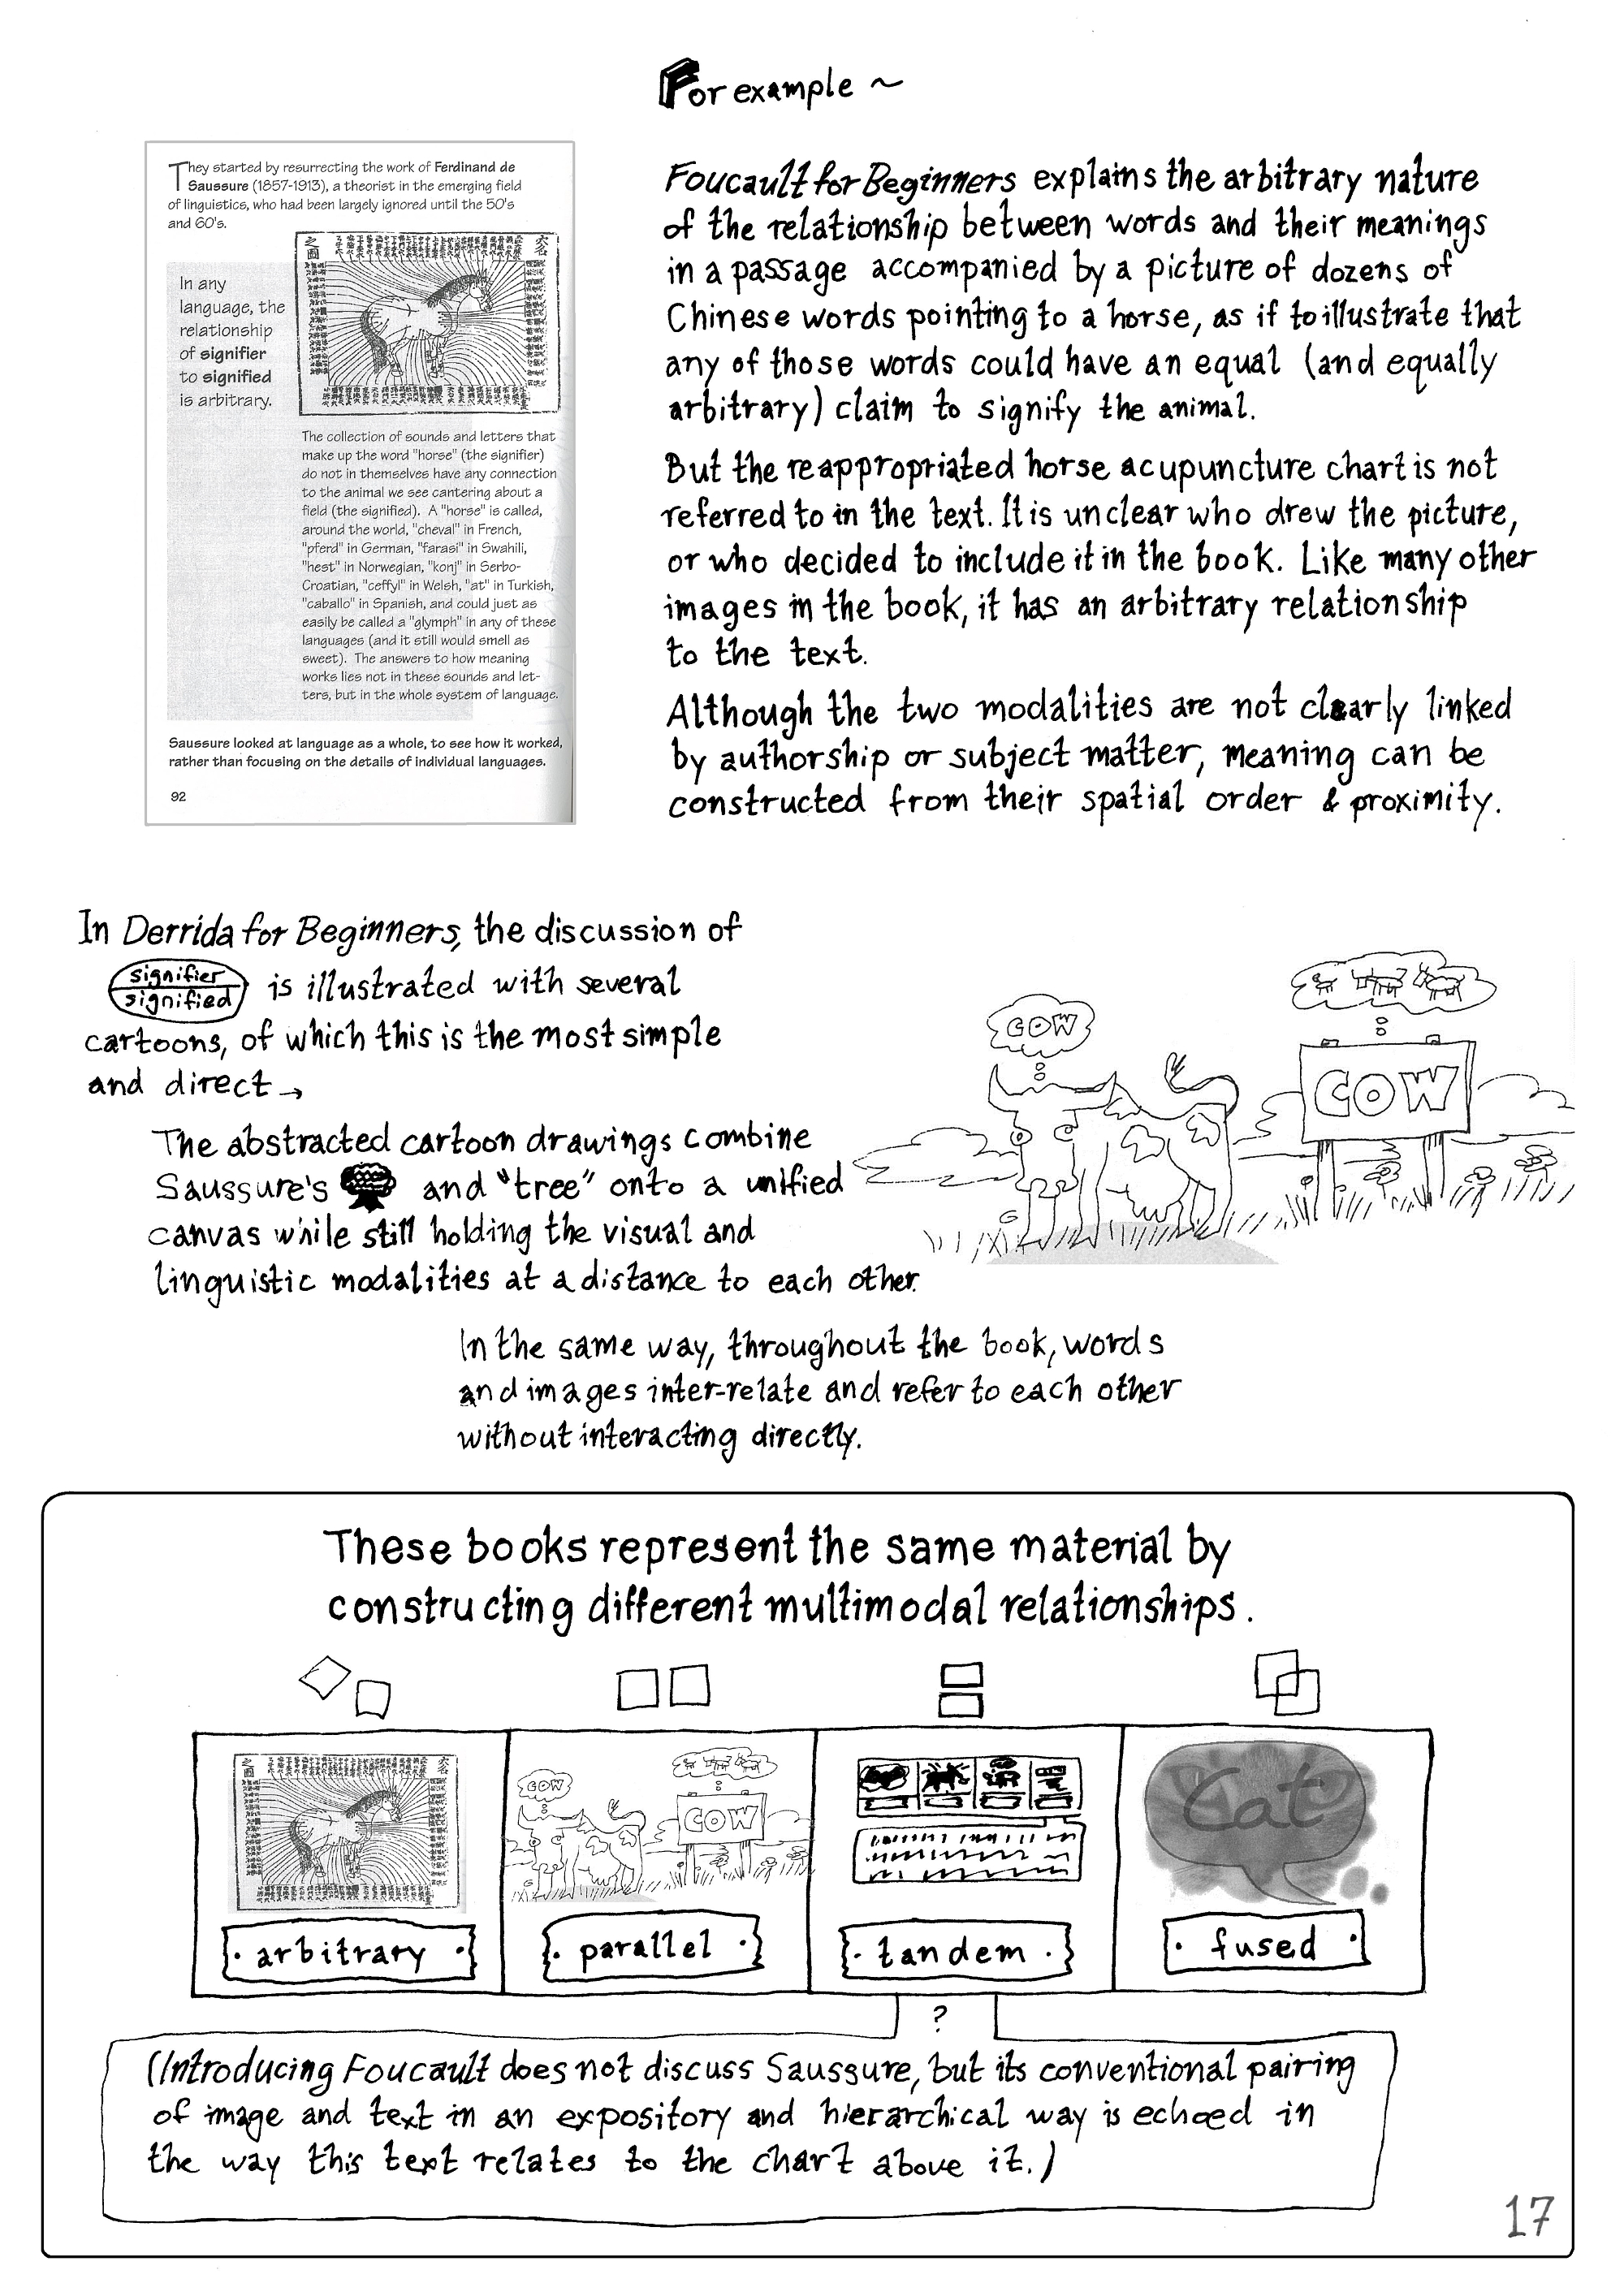 For example ~
They started by resurrecting the work of Ferdinand de
Saussure (1857-1913), a theorist in the emerging field
of linguistics, who had been largely ignored until the 50's
and 60's.
In any
language, the
relationship
of signifier
to signified
is arbitrary.
The collection of sounds and letters that
make up the word "horse" (the signifier)
do not in themselves have any connection
to the animal we see cantering about a
field (the signified). A "horse" is called,
around the world, "cheval" in French,
"pferd" in German, "farasi" in Swahili,
"hest" in Norwegian, "konj" in Serbo-
Croatian, "ceffyl" in Welsh, "at" in Turkish,
"caballo" in Spanish, and could just as
easily be called a "glymph" in any of these
languages (and it still would smell as
sweet). The answers to how meaning
works lies not in these sounds and let-
ters, but in the whole system of language.
Saussure looked at language as a whole, to see how it worked,
rather than focusing on the details of individual languages.
92
Foucault for Beginners explains the arbitrary nature
of the relationship between words and their meanings
in a passage accompanied by a picture of dozens of
Chinese words pointing to a horse, as if to illustrate that
any of those words could have an equal (and equally
arbitrary) claim to signify the animal.
But the reappropriated horse acupuncture chart is not
referred to in the text. It is unclear who drew the picture,
or who decided to include it in the book. Like many other
images in the book, it has an arbitrary relationship
to the text.
Although the two modalities are not clearly linked
by authorship or subject matter, meaning can be
constructed from their spatial order & proximity.
In Derrida for Beginners, the discussion of
signifier
signified
is illustrated with several
cartoons, of which this is the most simple
and direct →
COW
COW
The abstracted cartoon drawings combine
Saussure's and "tree" onto a unified
canvas while still holding the visual and
linguistic modalities at a distance to each other.
In the same way, throughout the book, words
and images inter-relate and refer to each other
without interacting directly.
These books represent the same material by
constructing different multimodal relationships.
COW
COW
Cat
· arbitrary ·
· parallel ·
· tandem ·
· fused ·
?
(Introducing Foucault does not discuss Saussure, but its conventional pairing
of image and text in an expository and hierarchical way is echoed in
the way this text relates to the chart above it.)
17